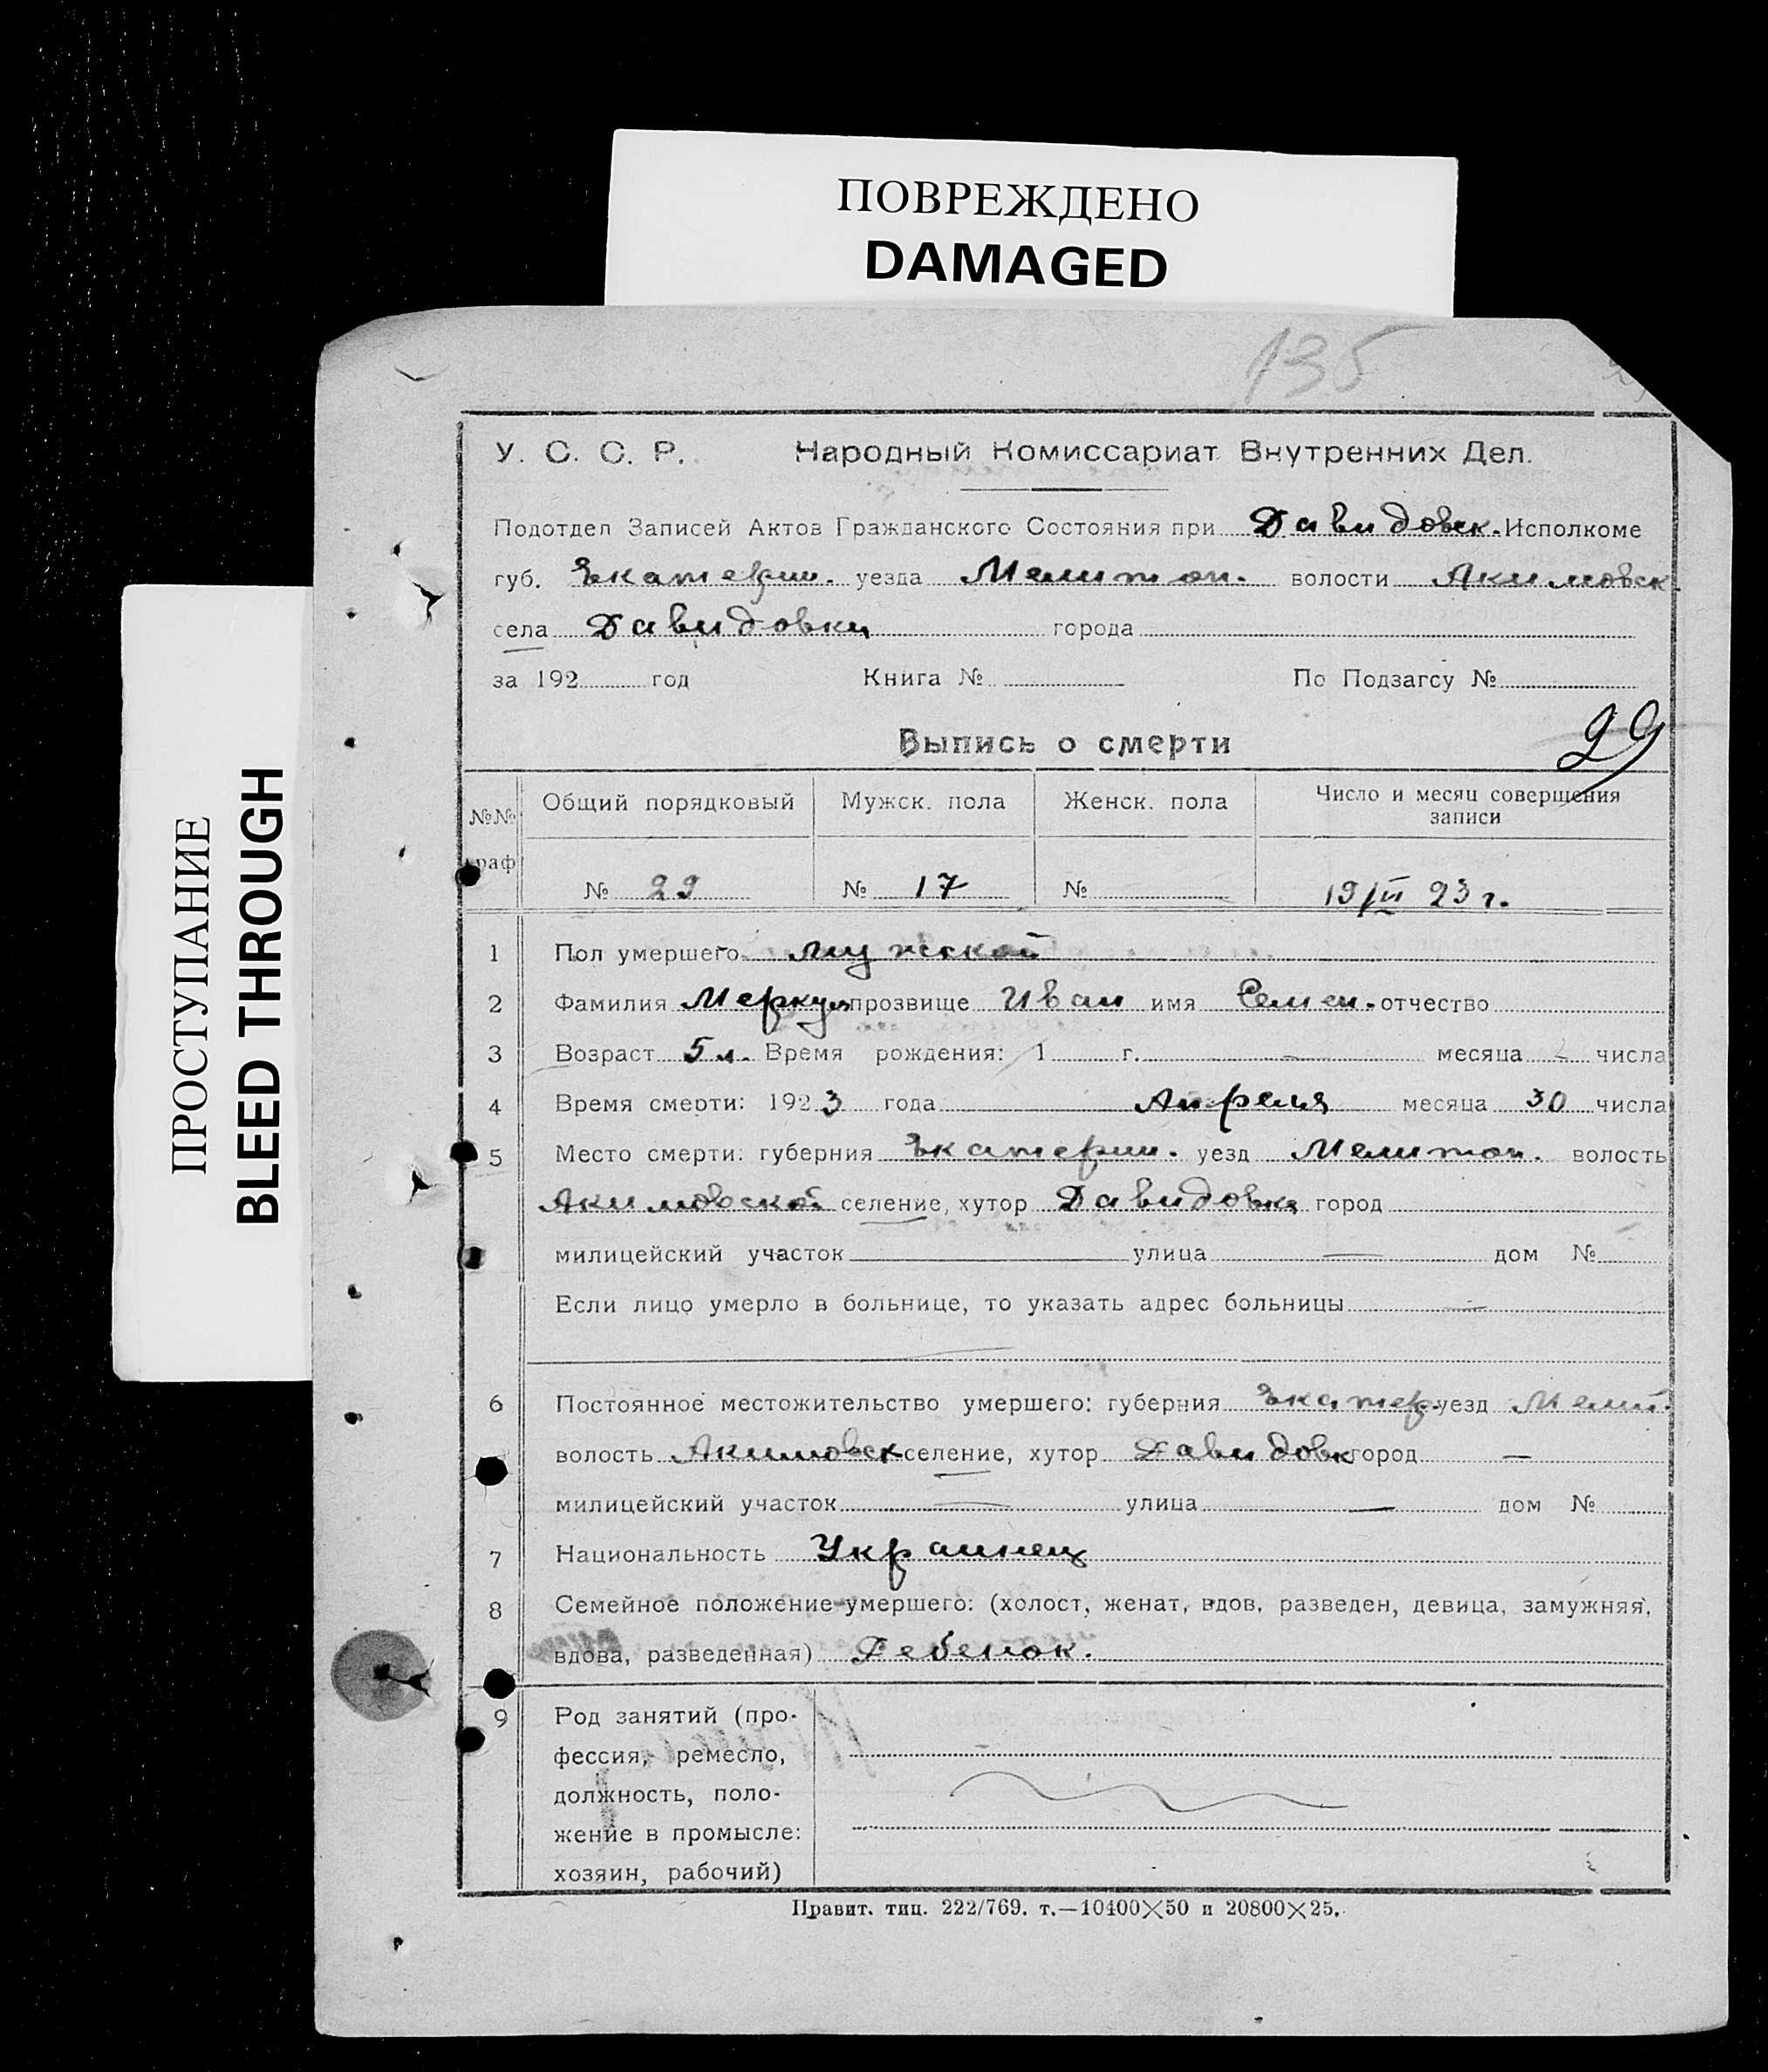 ПОВРЕЖДЕНО
DAMAGED
ПРОСТУПАНИЕ
BLEED THROUGH
135
У. С. С. Р. Народный Комиссариат Внутренних Дел.
Подотдел Записей Актов Гражданского Состояния при Давидовск. Исполкоме
губ. Екатерин. уезда Мелитоп. волости Акимовск
села Давидовки города
за 192 год Книга № По Подзагсу №
29
Выпись о смерти
№№ граф Общий порядковый Мужск. пола Женск. пола Число и месяц совершения записи
№ 29 № 17 № 19/VI 23 г.
1 Пол умершего мужской
2 Фамилия Меркул прозвище Иван имя Семен. отчество
3 Возраст 5 л. Время рождения: 1 г. — месяца — числа
4 Время смерти: 1923 года Апреля месяца 30 числа
5 Место смерти: губерния Екатерин. уезд Мелитоп. волость
Акимовской селение, хутор Давидовка город
милицейский участок улица — дом №
Если лицо умерло в больнице, то указать адрес больницы —
6 Постоянное местожительство умершего: губерния Екатер. уезд Мелит.
волость Акимовск селение, хутор Давидовк город —
милицейский участок — улица — дом №
7 Национальность Украинец
8 Семейное положение умершего: (холост, женат, вдов, разведен, девица, замужняя,
вдова, разведенная) Ребенок.
9 Род занятий (про-
фессия, ремесло,
должность, поло-
жение в промысле:
хозяин, рабочий)
Правит. тип. 222/769. т.—10400×50 и 20800×25.